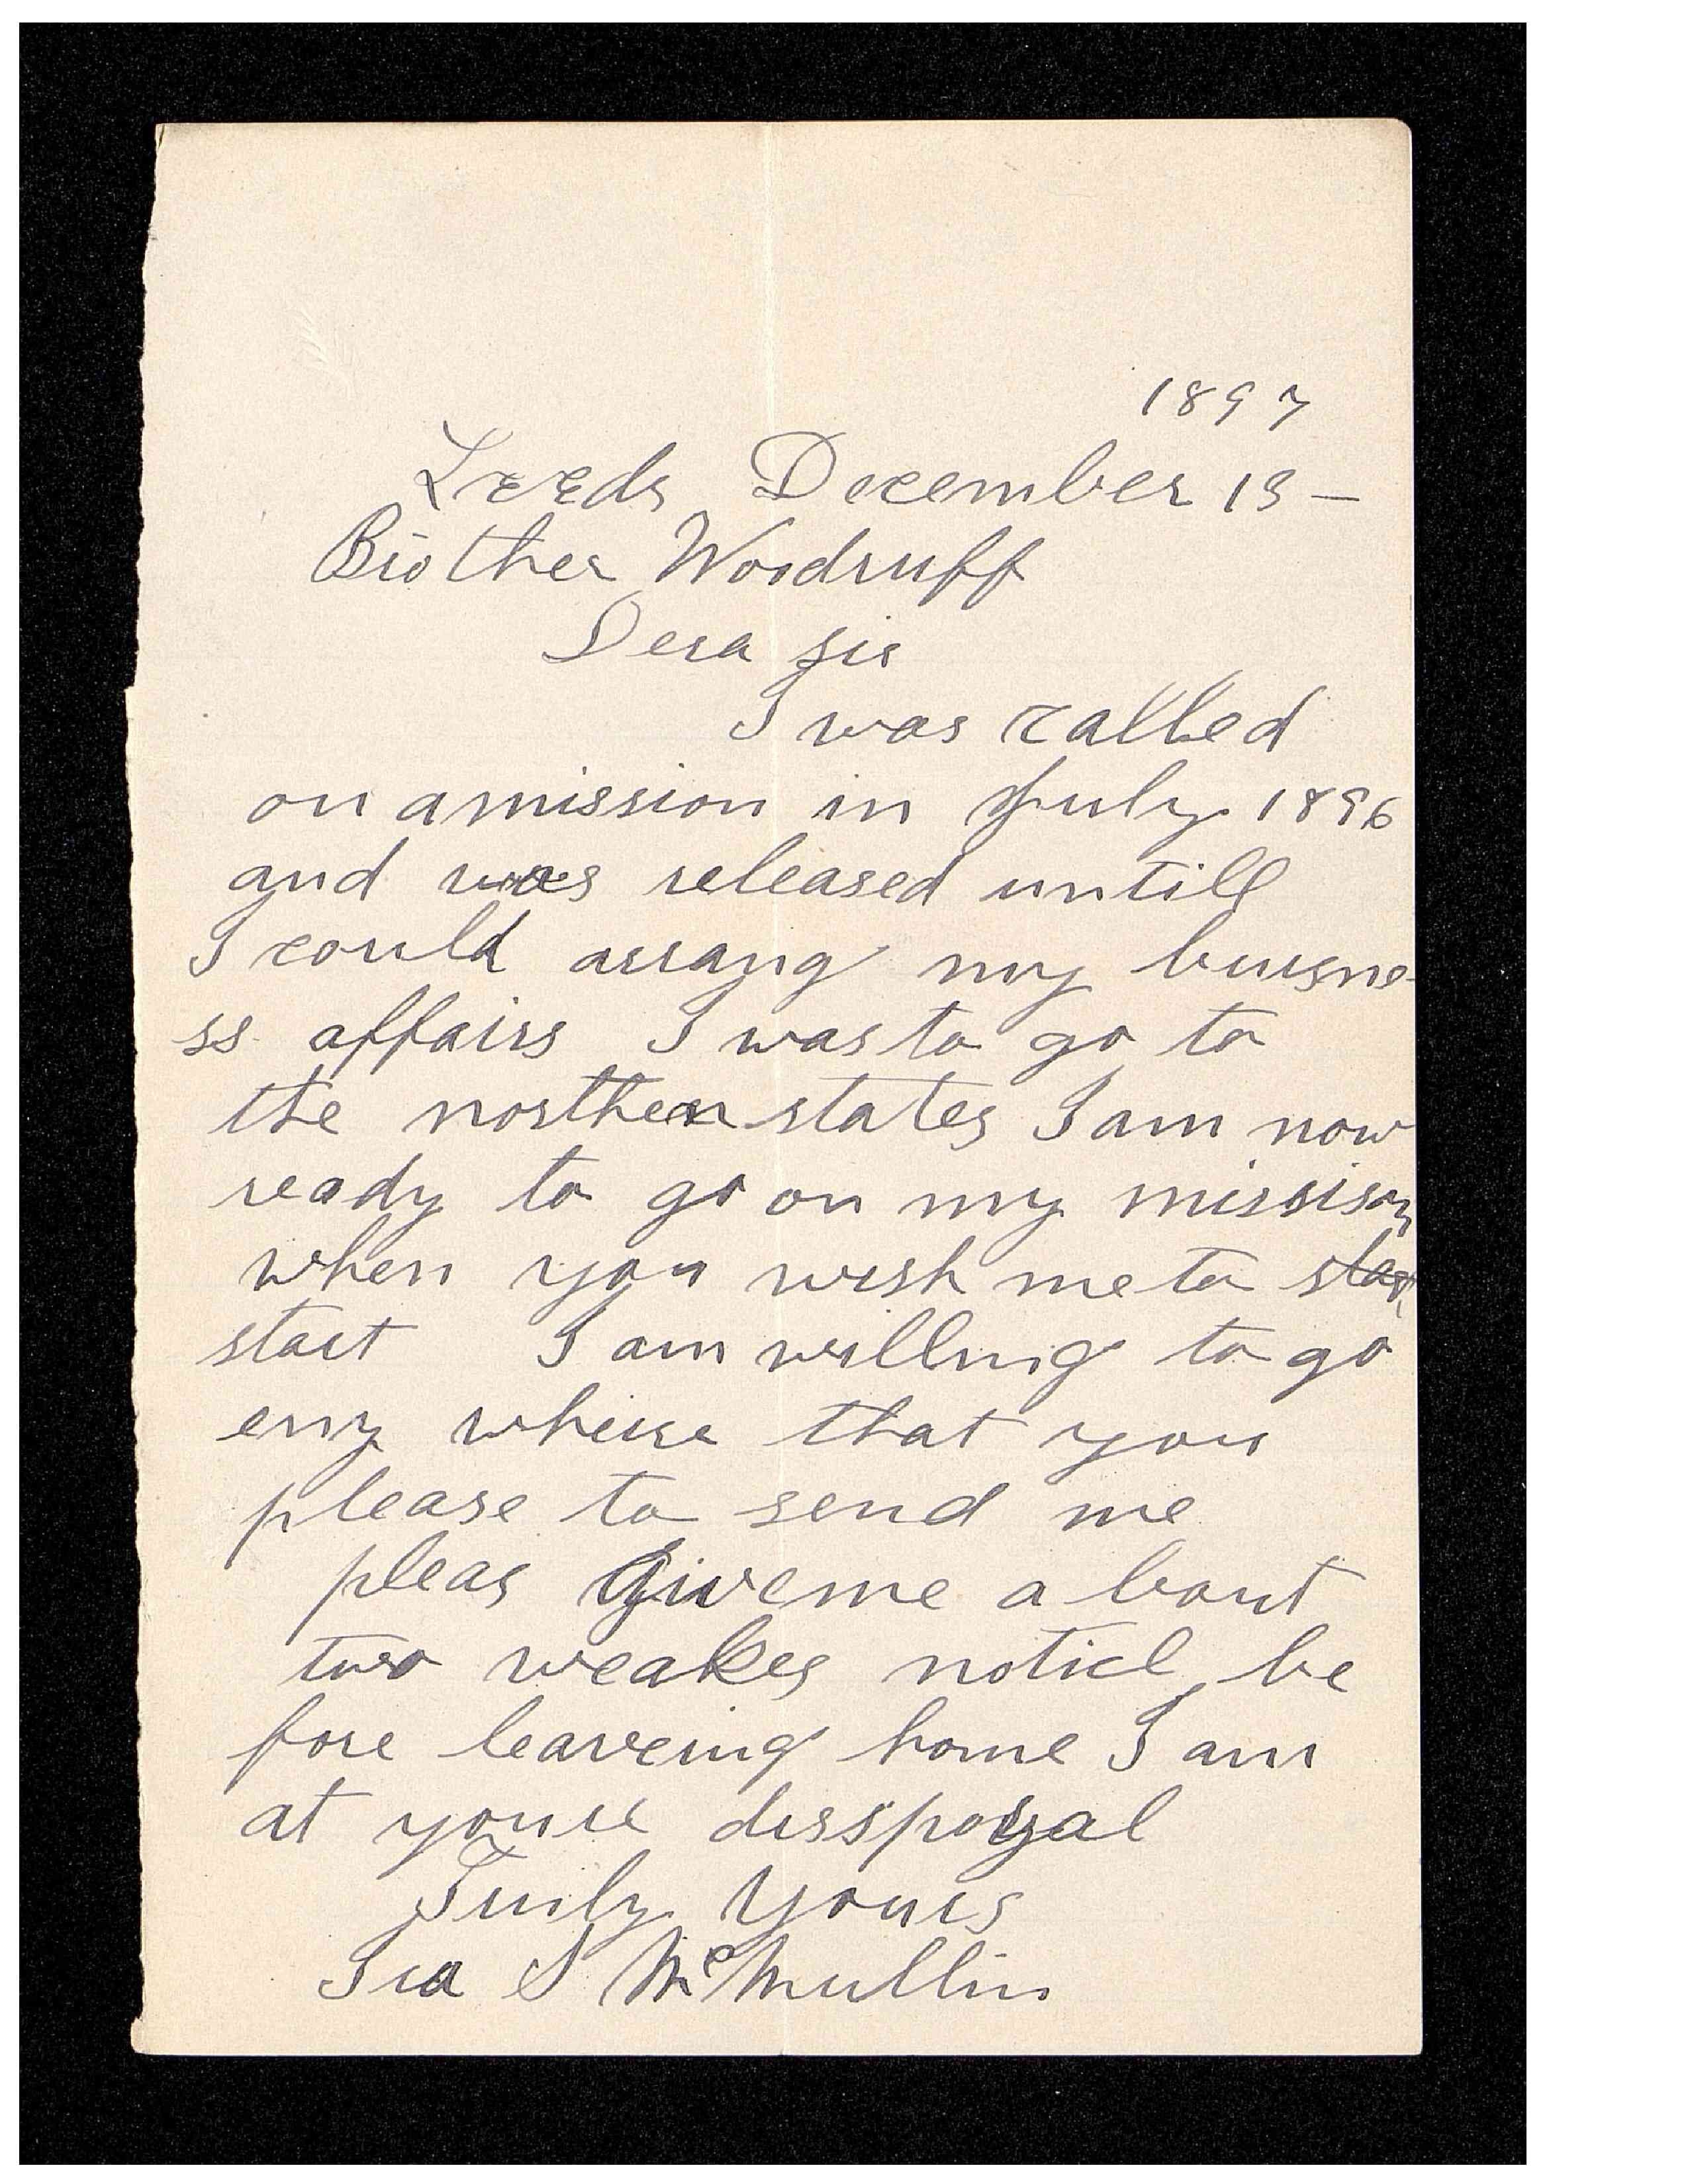 1897
Leeds December 13 —
Brother Woodruff
Dera sir
I was called
on a mission in July 1896
and was released untill
I could arrang my buisne-
ss affairs I was to go to
the northen states I am now
ready to go on my mission
when you wish me to star
start I am willing to go
eny wheire that you
please to send me
pleas give me a bout
two weakes notice be
fore leaveing home I am
at youre disspossal
Truly Yours
Ira S McMullin